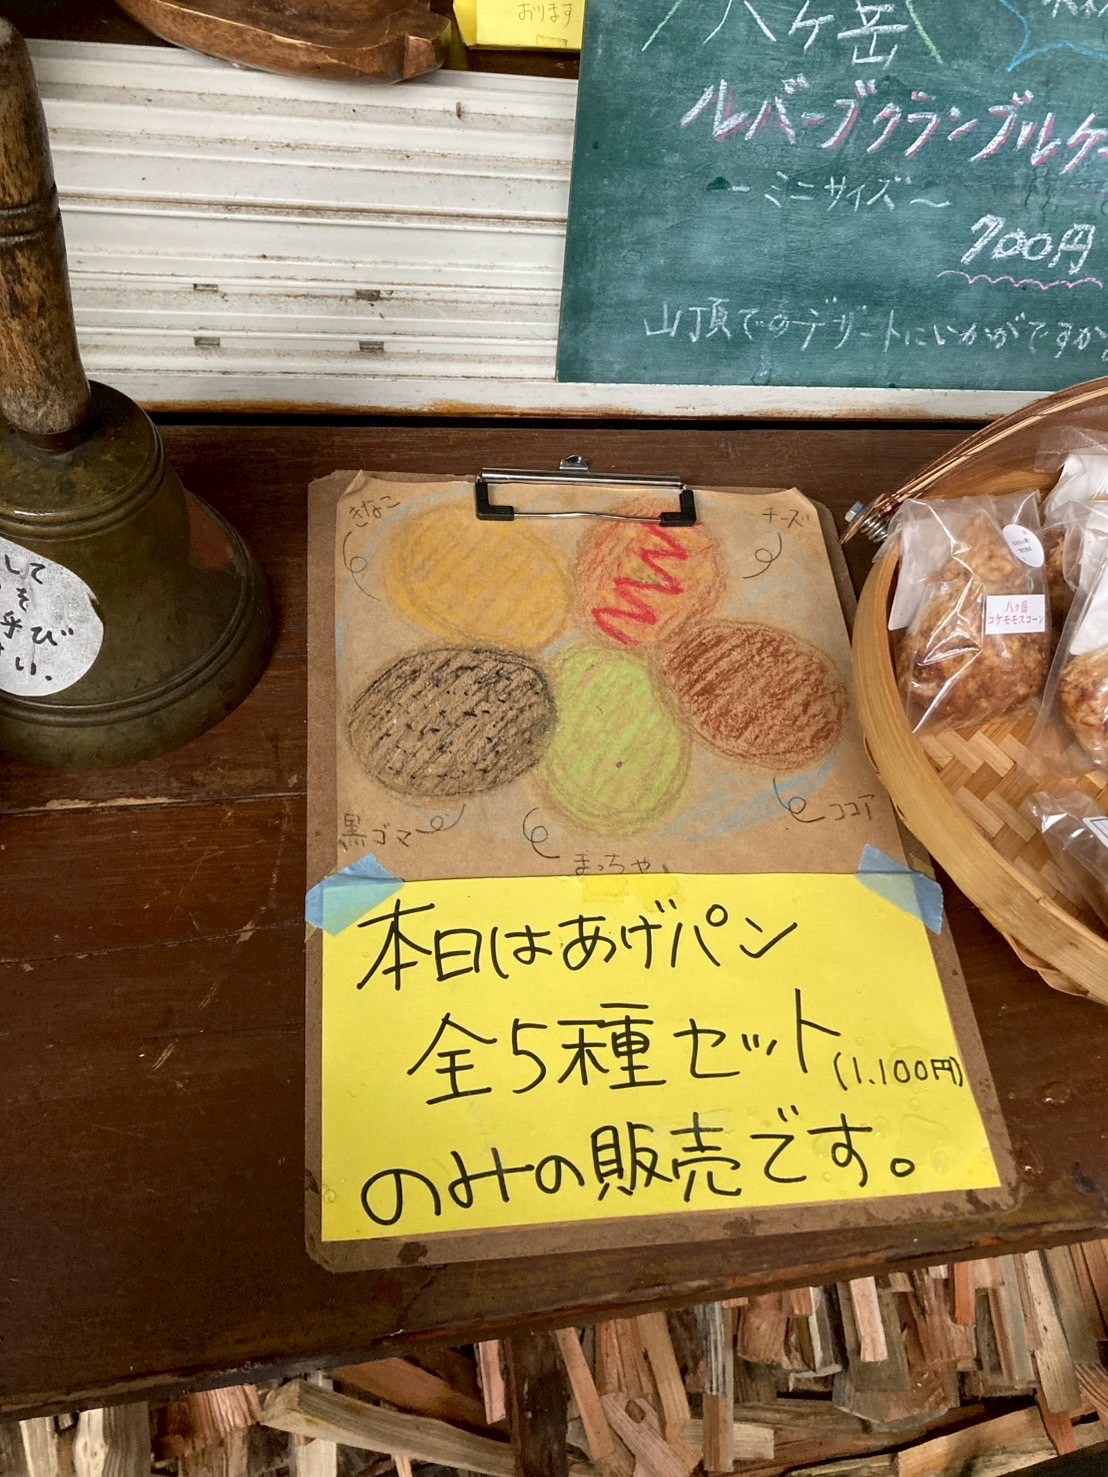 おります
八ヶ岳
ルバーブクランブルケー
-ミニサイズ〜
700円
山頂でのデザートにいかがですか
きなこ
チーズ
黒ゴマ
まっちゃ
ココア
本日はあげパン
全5種セット(1.100円)
のみの販売です。
八ヶ岳
コケモモスコーン
して
を
呼び
さい.